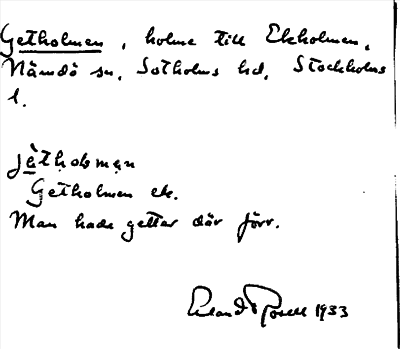 Getholmen, holme till Ekholmen,
Nämdö sn, Sotholms hd, Stockholms
l.
jètholsmạn
Getholmen ek.
Man hade getter där förr.
Erland Rosell 1933